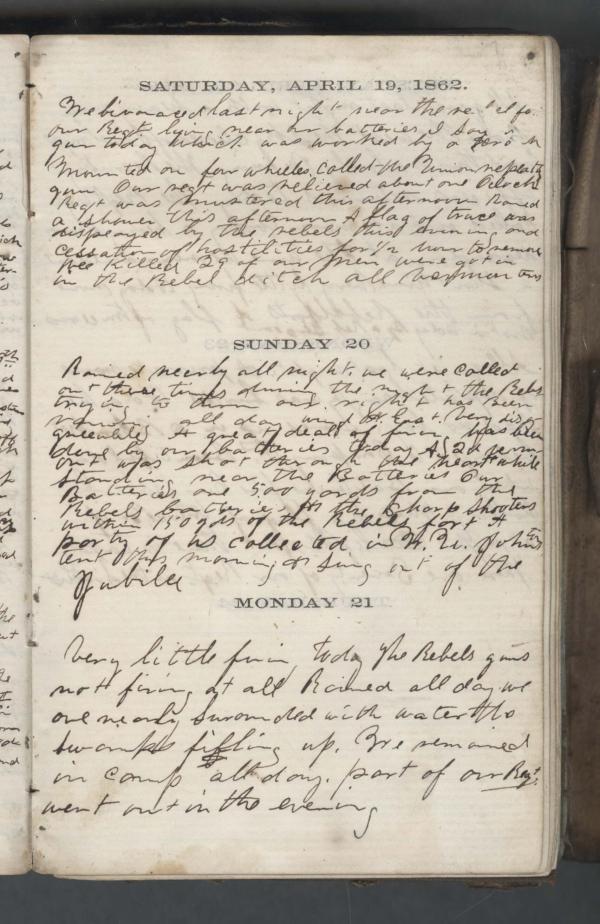 SATURDAY, APRIL 19, 1862.
We bivouaced last night near the
our Regt lying near our batteries I saw a
gun today which was worked by a
mounted on four wheeles, called the Union repeating
gun Our regt was relieved about one Oclock
Regt was mustered this afternoon Rained
a shower this afternoon A flag of truce was
displayed by the rebels this evening and
cessation of hostilities for 1/2 hour to remove
the killed 29 of our men were got in
in the Rebel ditch all Vermonters
SUNDAY 20
Rained nearly all night, we were called
out three times during the night the Rebs
trying to our right It has been
raining all day wind N East. Very disa-
greeable A great deal of firing has been
done by our batteries today A 2d
was shot through the heart while
standing near the Batteries Our
Batteries are 500 yards from the
Rebels batteries the Sharp Shooters
within 150 yds of the Rebels fort A
party of us collected in W. H. Johnston
tent this morning & sung out of the
Jubilee
MONDAY 21
Very little firin, today The Rebels guns
not firing at all Rained all day we
are nearly surounded with water the
swamps filling up. We remained
in camp all day. part of our Regt.
went out in the evening